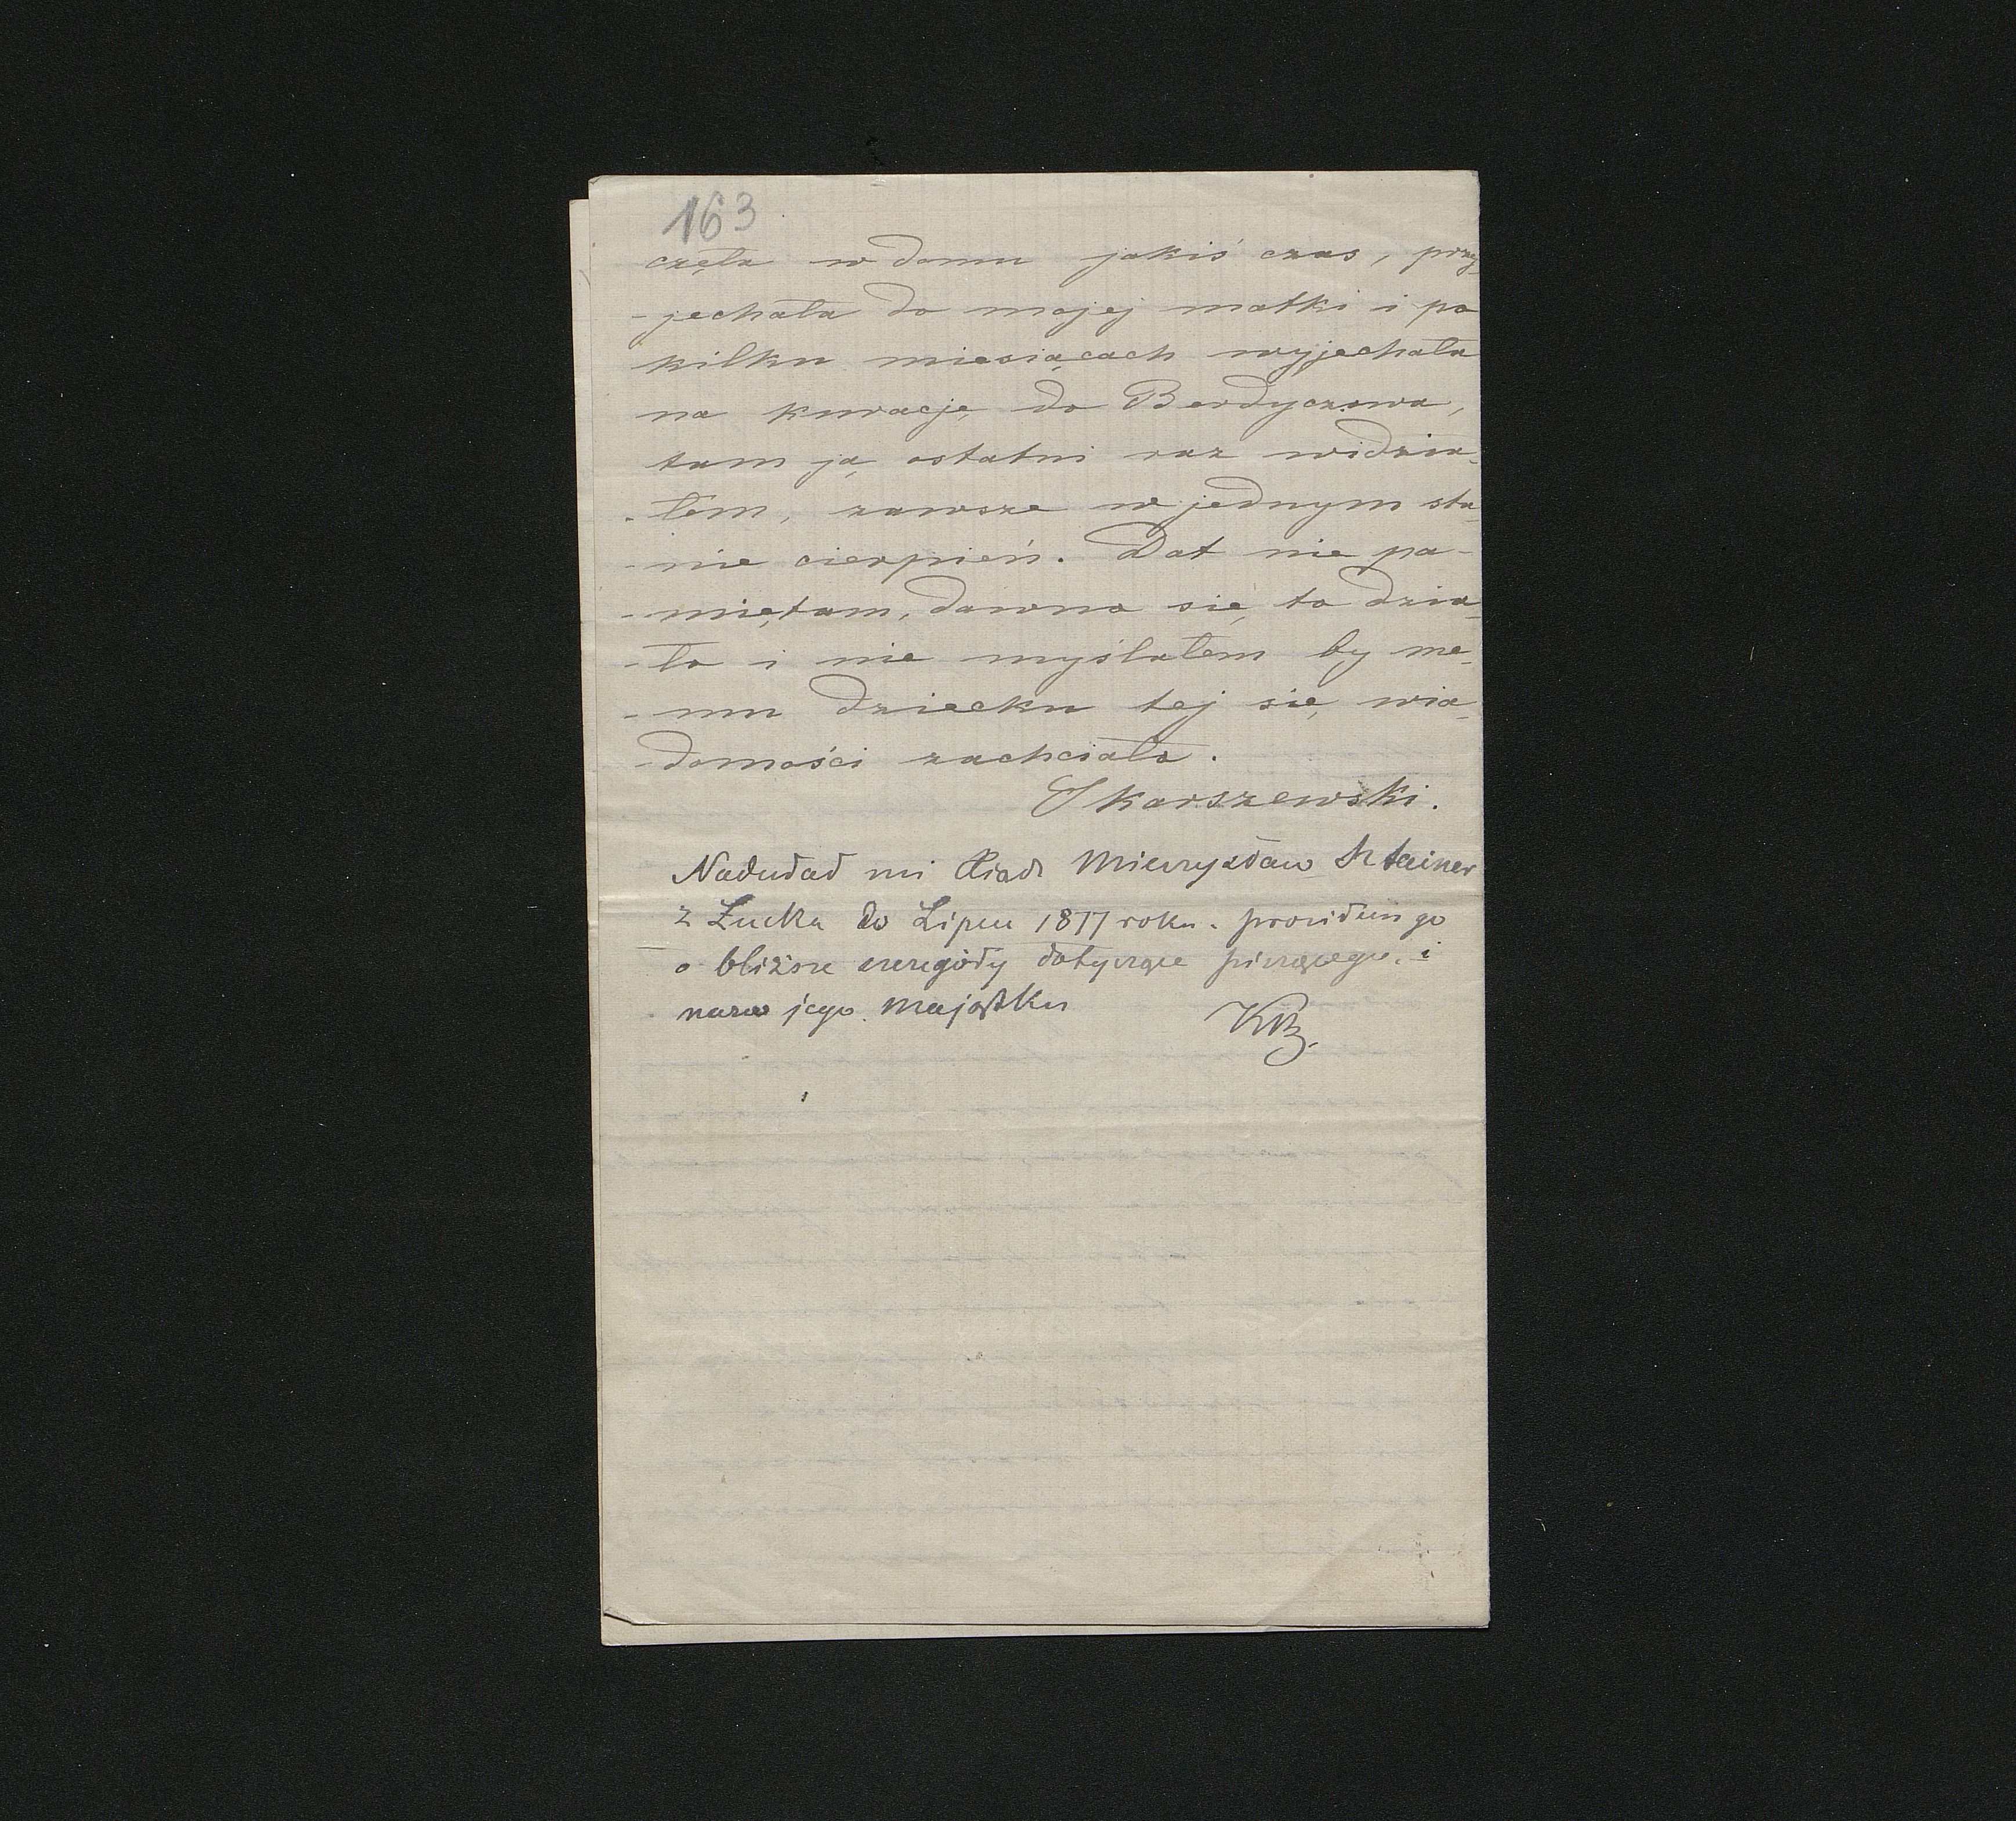 163
częła w domu jakiś czas, przy-
- jechała do mojej matki i po
kilku miesiącach wyjechała
na kuracje, do Berdyczowa,
tam ją ostatni raz widzia-
- łem, zawsze w jednym sta-
- nie cierpień. Dat nie pa-
- miętam, dawno się to dzia-
- ło i nie myślałem by me-
- mu dziecku tej się wia-
- domości zachciało.
Skarszewski.
Nadesłał mi Mieczysław Sztainer
z Łucka do Lipca 1877 roku. prosiłem go
o bliższe szczegóły dotyczące piszącego, i
nazw jego majątku
KB.